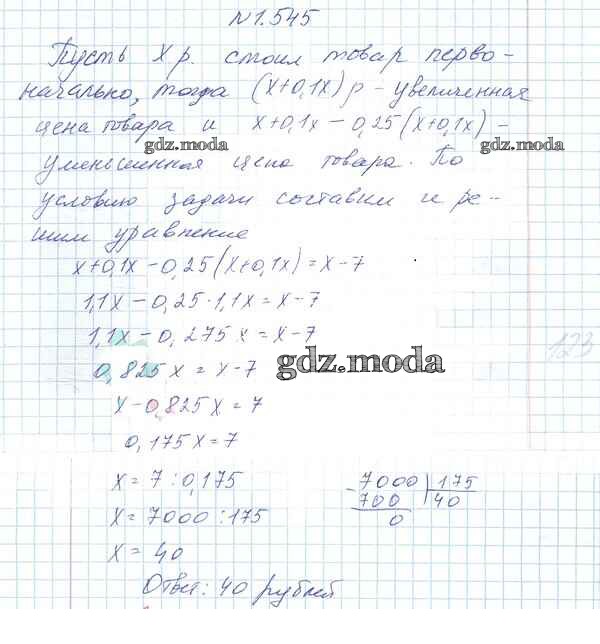 №1.545
Пусть x р. стоил товар перво-
начально, тогда (x+0,1x) р – увеличенная
цена товара и x+0,1x – 0,25(x+0,1x) –
gdz.moda gdz.moda
уменьшенная цена товара. По
условию задачи составим и ре-
шим уравнение
x+0,1x – 0,25(x+0,1x) = x – 7
1,1x – 0,25·1,1x = x – 7
1,1x – 0,275x = x – 7
123
0,825x = x – 7
gdz.moda
x – 0,825x = 7
0,175x = 7
x = 7 : 0,175
7000 | 175
x = 7000 : 175
– 700 40
0
x = 40
Ответ: 40 рублей